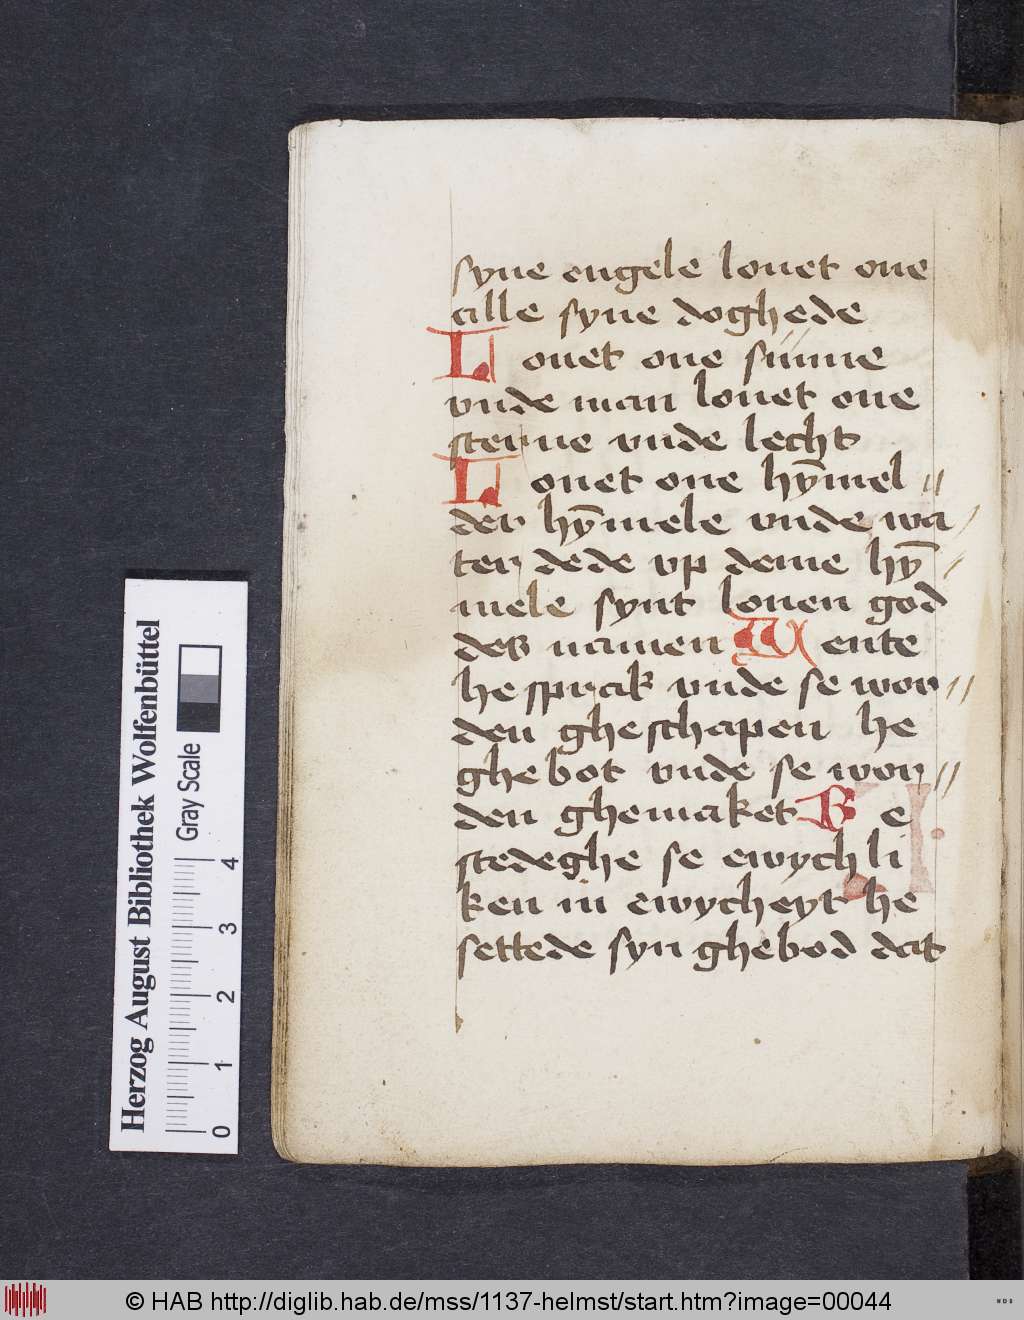 syne engele louet one
alle syne doghede
Louet one sunne
vnde man louet one
sterne vnde lecht
Louet one hȳmel
der hȳmele vnde wa
ter dede vp deme hȳ
mele synt louen god
des namen Wente
he sprak vnde se wor
den gheschapen he
ghebot vnde se wor
den ghemaket Be
stedeghe se ewychli
ken in ewycheyt he
settede syn ghebod dat
Herzog August Bibliothek Wolfenbüttel
Gray Scale
0 1 2 3 4
© HAB http://diglib.hab.de/mss/1137-helmst/start.htm?image=00044